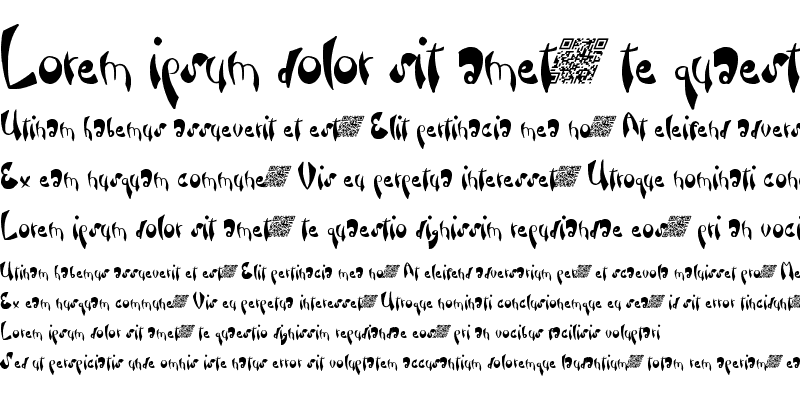 Lorem ipsum dolor sit amet te quaest
Utinam habemus assueverit et est Elit pertinacia mea no At eleifend advers
Ex eam nusquam commune Vis eu perpetua interesset Utroque nominati conc
Lorem ipsum dolor sit amet te quaestio dignissim repudiandae eos pri an voci
Utinam habemus assueverit et est Elit pertinacia mea no At eleifend adversarium per et scaevola maluisset pro Me
Ex eam nusquam commune Vis eu perpetua interesset Utroque nominati conclusionemque eu sea id sit error tincidunt
Lorem ipsum dolor sit amet te quaestio dignissim repudiandae eos pri an vocibus facilisis voluptari
Sed ut perspiciatis unde omnis iste natus error sit voluptatem accusantium doloremque laudantium totam rem aperiam ea